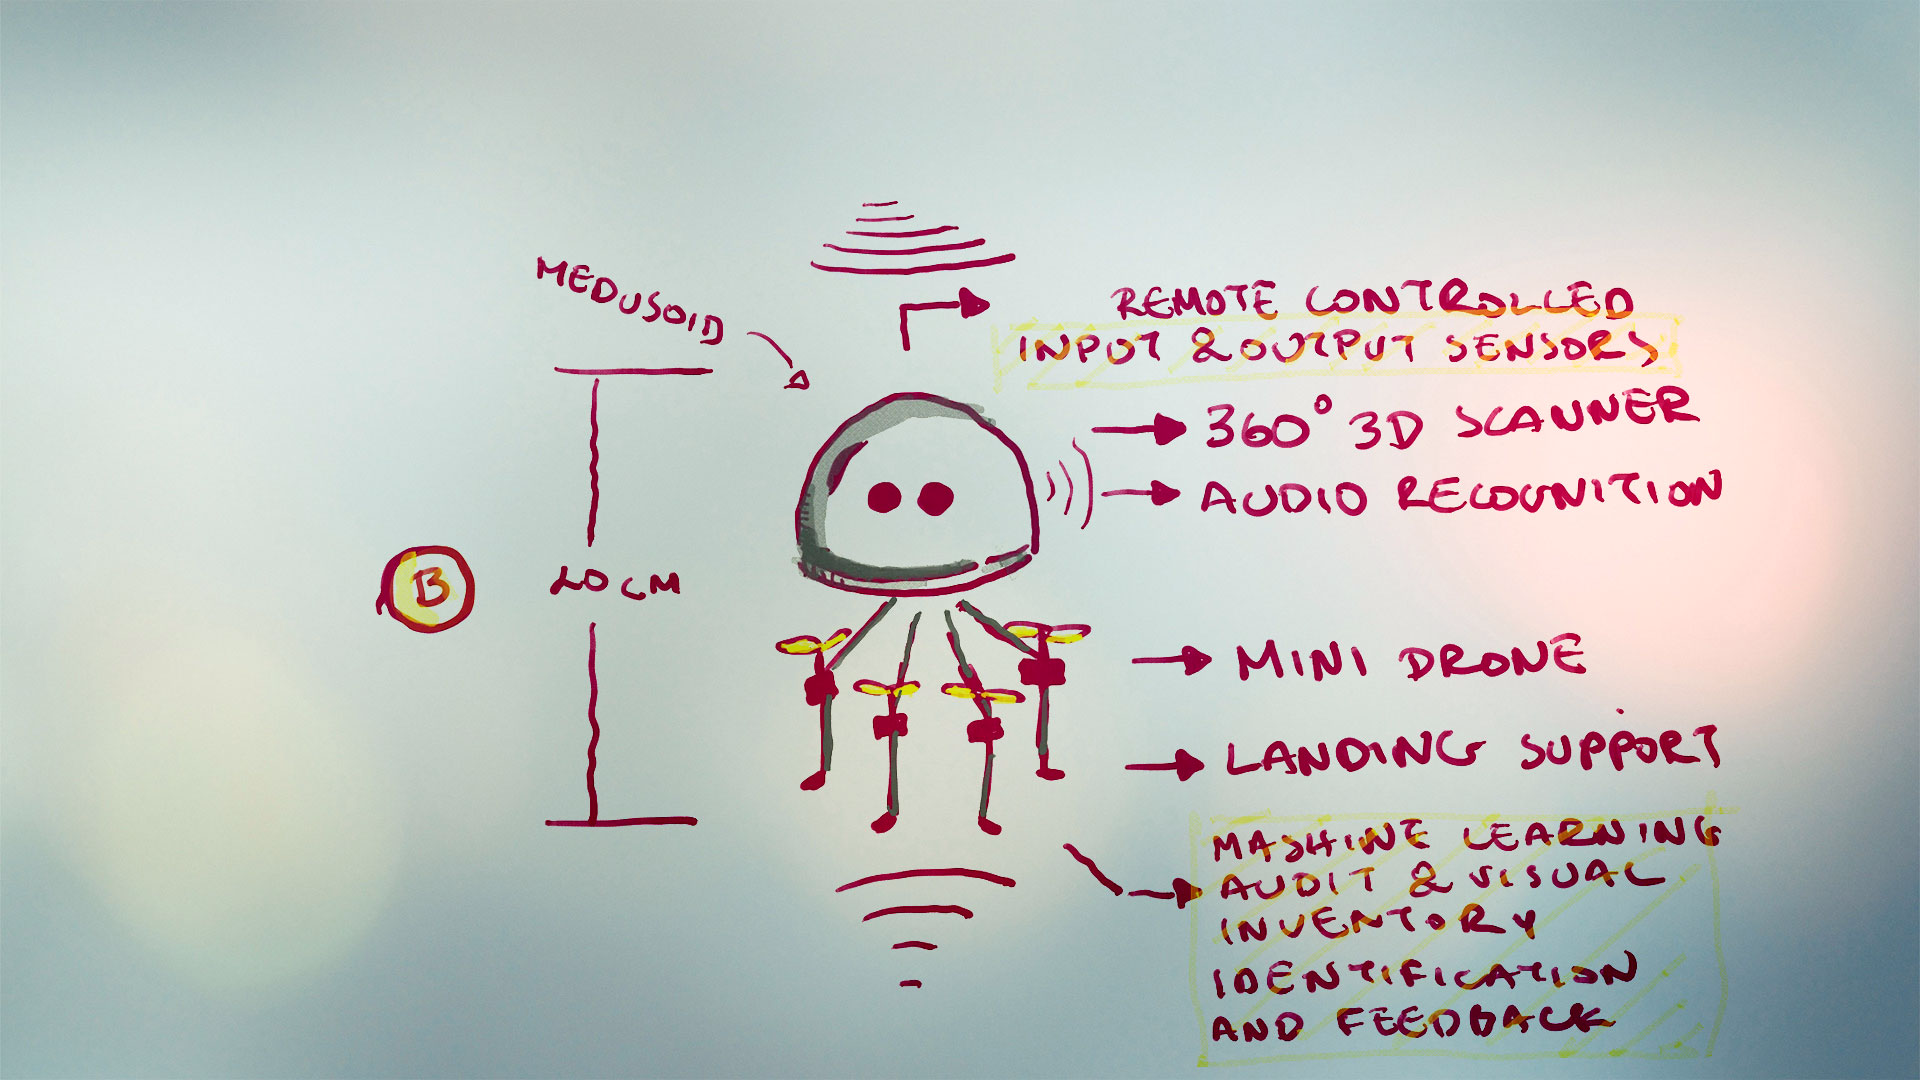 MEDUSOID
REMOTE CONTROLLED
INPUT & OUTPUT SENSORS
360° 3D SCANNER
AUDIO RECOGNITION
B
20 CM
MINI DRONE
LANDING SUPPORT
MASHINE LEARNING
AUDIT & VISUAL
INVENTORY
IDENTIFICATION
AND FEEDBACK